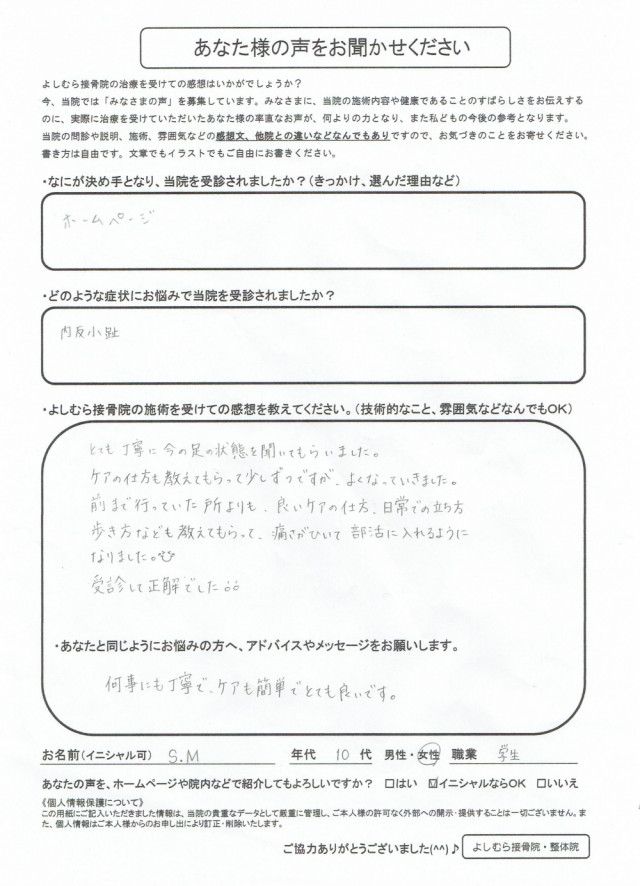 あなた様の声をお聞かせください
よしむら接骨院の治療を受けての感想はいかがでしょうか？
今、当院では「みなさまの声」を募集しています。みなさまに、当院の施術内容や健康であることのすばらしさをお伝えする
のに、実際に治療を受けていただいたあなた様の率直なお声が、何よりの力となり、また私どもの今後の参考となります。
当院の問診や説明、施術、雰囲気などの感想文、他院との違いなどなんでもありですので、お気づきのことをお寄せください。
書き方は自由です。文章でもイラストでもご自由にお書きください。
・なにが決め手となり、当院を受診されましたか？（きっかけ、選んだ理由など）
ホームページ
・どのような症状にお悩みで当院を受診されましたか？
内反小趾
・よしむら接骨院の施術を受けての感想を教えてください。（技術的なこと、雰囲気などなんでもOK）
とても丁寧に今の足の状態を聞いてもらいました。
ケアの仕方も教えてもらって少しずつですが、よくなっていきました。
前まで行っていた所よりも、良いケアの仕方、日常での立ち方
歩き方なども教えてもらって、痛さがひいて部活に入れるように
なりました。
受診して正解でした
・あなたと同じようにお悩みの方へ、アドバイスやメッセージをお願いします。
何事にも丁寧で、ケアも簡単でとても良いです。
お名前（イニシャル可） S.M 年代 10 代 男性・女性 職業 学生
あなたの声を、ホームページや院内などで紹介してもよろしいですか？ □はい ☑イニシャルならOK □いいえ
《個人情報保護について》
この用紙にご記入いただきました情報は、当院の貴重なデータとして厳重に管理し、ご本人様の許可なく外部への開示・提供することは一切ございません。ま
た、個人情報はご本人様からのお申し出により訂正・削除いたします。
ご協力ありがとうございました(^^)♪ よしむら接骨院・整体院